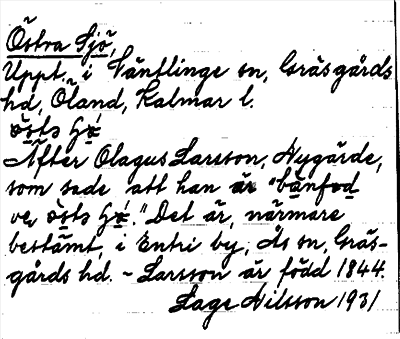 Östra Sjö,
Uppt. i Ventlinge sn, Gräsgårds
hd, Öland, Kalmar l.
Efter Olagus Larsson, Nygärde,
som sade att han är "bänfod
ve
." Det är, närmare
bestämt, i Entri by, Ås sn, Gräs-
gårds hd. - Larsson är född 1844.
Lage Nilsson 1931